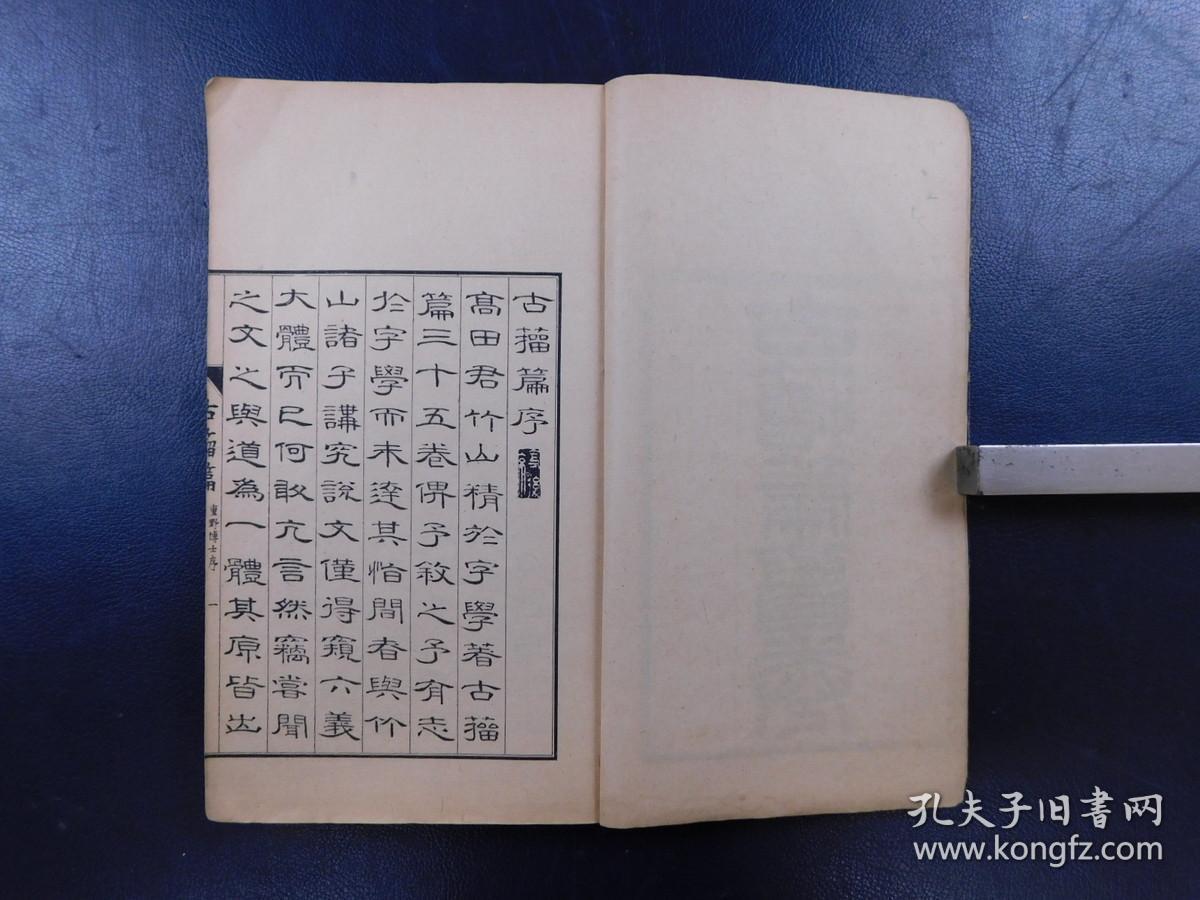 古籀篇序
高田君竹山精於字學著古籀
篇三十五卷俾予敘之予有志
於字學而未達其恉間者與竹
山諸子講究說文僅得窺六義
大體而已何敢亢言然竊嘗聞
之文之與道為一體其原皆出
古籀篇
重野博士序
一
孔夫子旧書网
www.kongfz.com